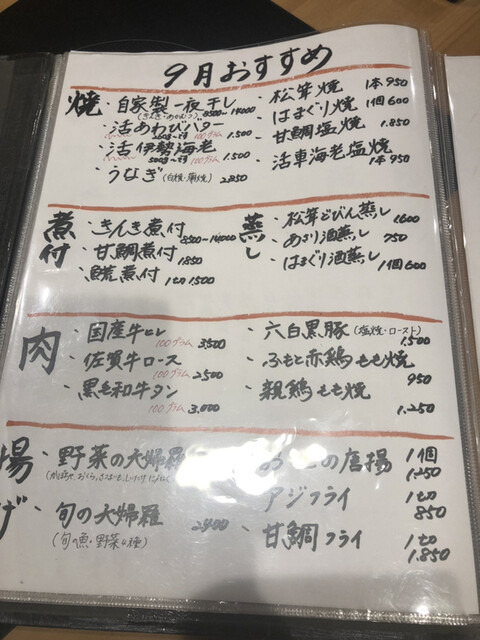 9月おすすめ
焼
・自家製一夜干し
8500〜14000
・活あわびバター
100グラム 1.500
・活伊勢海老
500g〜です 100グラム 1.500
・うなぎ(白焼・蒲焼) 2.850
・松茸焼 1本 950
・はまぐり焼 1個 600
・甘鯛塩焼 1.850
・活車海老塩焼
1本 950
煮付
・きんき煮付
8500〜14000
・甘鯛煮付
1.850
・煮付 1切 1500
蒸し
・松茸どびん蒸し
1600
・あさり酒蒸し
750
・はまぐり酒蒸し
1個 600
肉
・国産牛ヒレ
100グラム 3500
・佐賀牛ロース
100グラム 2500
・黒毛和牛タン
100グラム 3.000
・六白黒豚(塩焼・ロースト)
1500
・ふもと赤鶏もも焼
950
・親鶏もも焼
1.250
揚げ
・野菜の大婦羅
・旬の大婦羅 2400
(旬の魚・野菜4種)
の唐揚 1個
1.250
・アジフライ 1切
850
・甘鯛フライ 1切
1.850